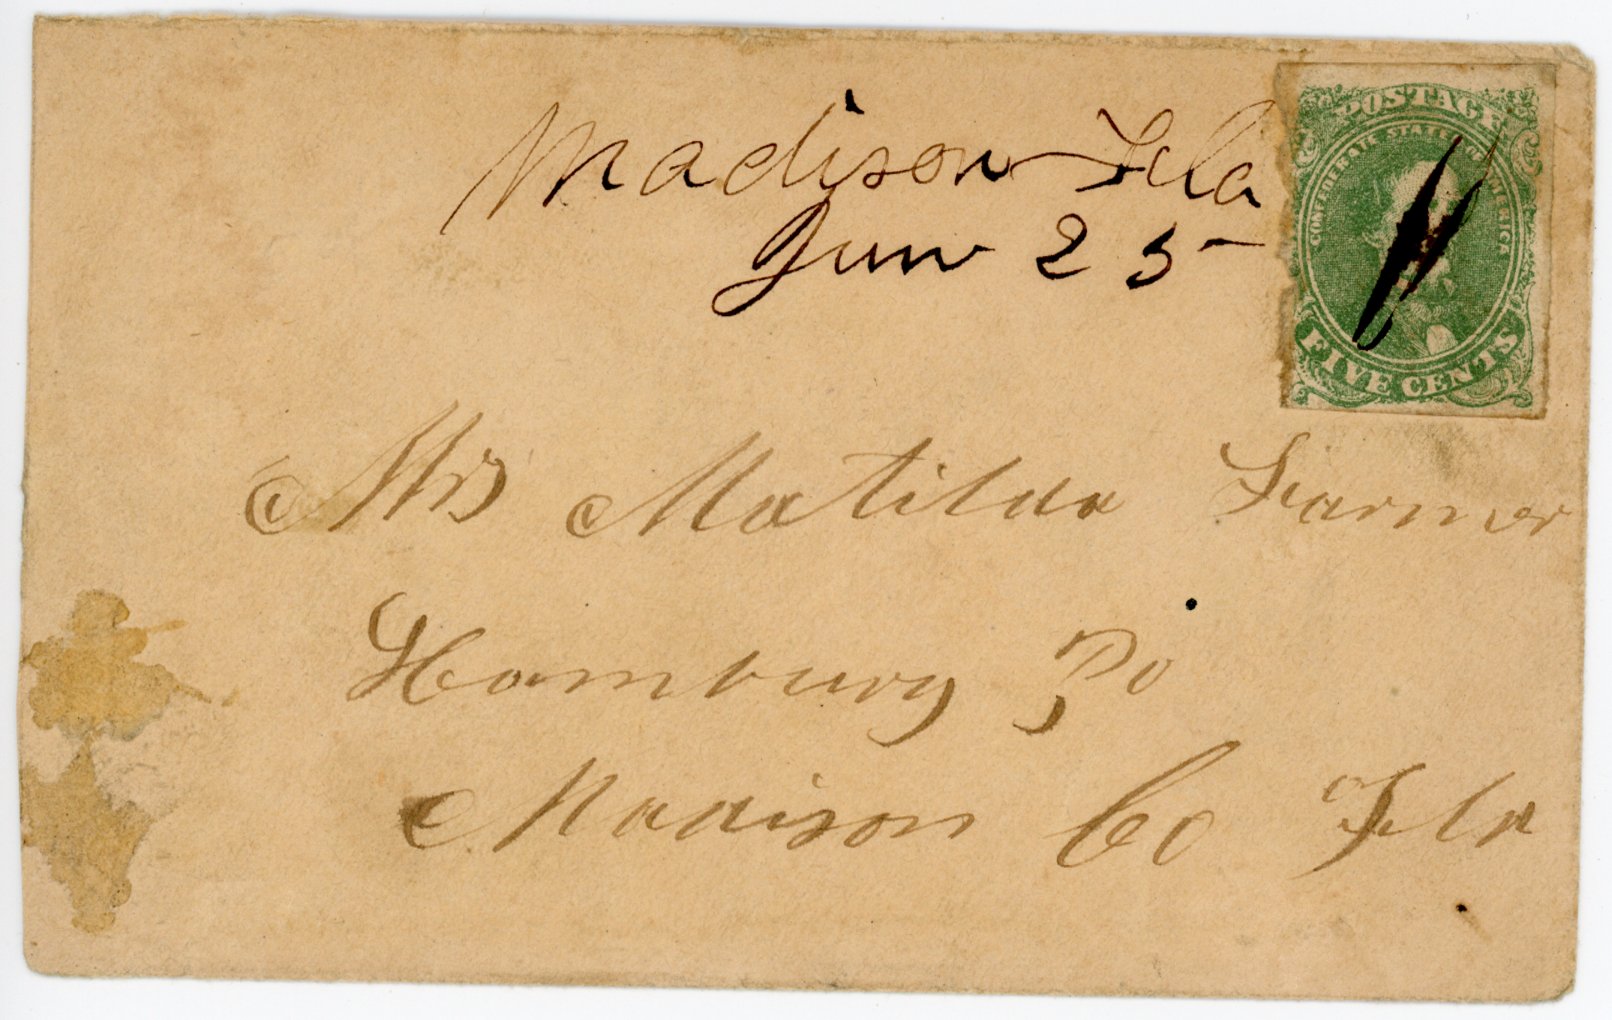 Madison Fla
Jun 25
POSTAGE
CONFEDERATE STATES OF AMERICA
FIVE CENTS
Mrs Matilda Farmer
Hamburg Po
Madison Co Fla